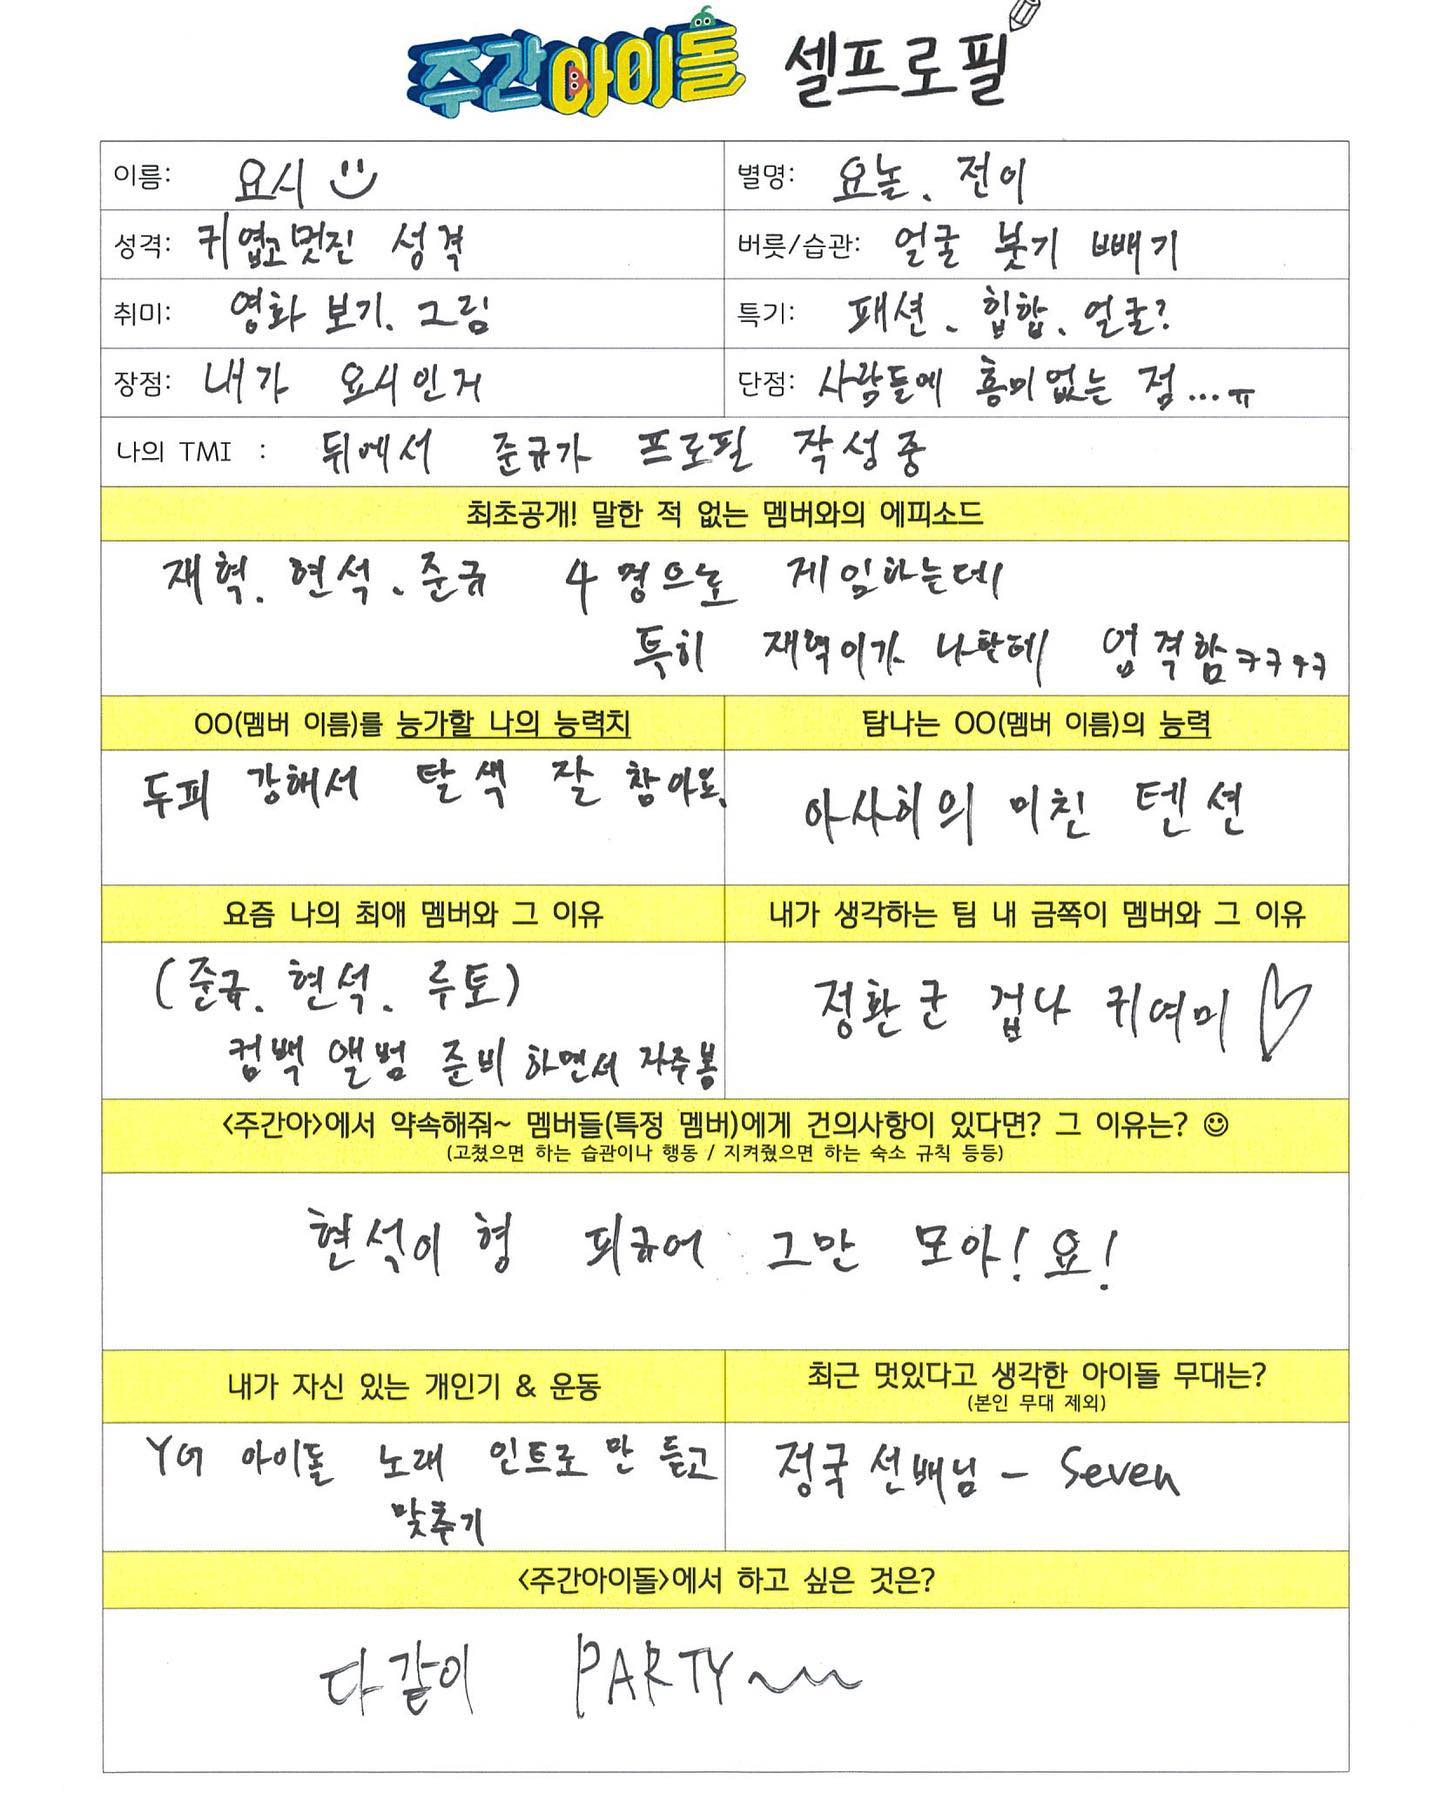 주간아이돌 셀프로필
이름: 요시 별명: 요놀, 전이
성격: 귀엽고 멋진 성격 버릇/습관: 얼굴 붓기 빼기
취미: 영화 보기, 그림 특기: 패션, 힙합, 얼굴?
장점: 내가 요시인거 단점: 사람들에 흥미없는 점...ㅠ
나의 TMI : 뒤에서 준규가 프로필 작성중
최초공개! 말한 적 없는 멤버와의 에피소드
재혁, 현석, 준규 4명으로 게임하는데
특히 재혁이가 나한테 엄격함ㅋㅋㅋㅋ
OO(멤버 이름)를 능가할 나의 능력치
두피 강해서 탈색 잘 참아요.
탐나는 OO(멤버 이름)의 능력
아사히의 미친 텐션
요즘 나의 최애 멤버와 그 이유
(준규, 현석, 루토)
컴백 앨범 준비하면서 자주봄
내가 생각하는 팀 내 금쪽이 멤버와 그 이유
정환군 겁나 귀여미
<주간아>에서 약속해줘~ 멤버들(특정 멤버)에게 건의사항이 있다면? 그 이유는?
(고쳤으면 하는 습관이나 행동 / 지켜줬으면 하는 숙소 규칙 등등)
현석이 형 피규어 그만 모아!요!
내가 자신 있는 개인기 & 운동
YG 아이돌 노래 인트로만 듣고
맞추기
최근 멋있다고 생각한 아이돌 무대는?
(본인 무대 제외)
정국선배님 - Seven
<주간아이돌>에서 하고 싶은 것은?
다같이 PARTY~~